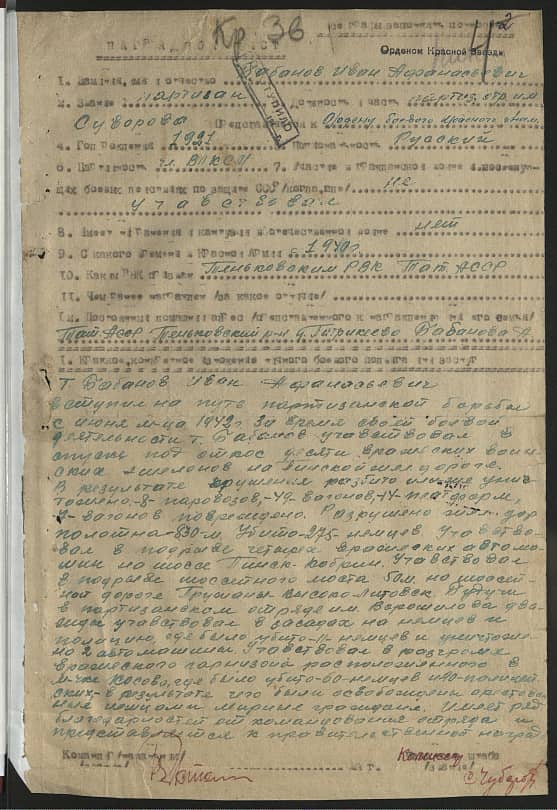 Кр. 36
2
НАГРАДНОЙ ЛИСТ
Орденом Красной Звезды
ПОСТУПИЛО
I. Фамилия, имя и отчество Бабанов Иван Афанасьевич
2. Звание партизан Должность, часть отр. им.
Суворова Представляется к Ордену боевого Красного знам.
4. Год рождения 1921 Национальность Русский
6. Партийность чл. ВЛКСМ 7. Участие в гражданской войне и последую-
щих боевых действиях по защите СССР /когда, где/ не
участвовал
8. Имеет ли ранения и контузии в отечественной войне нет
9. С какого времени в Красной Армии с 1940 г.
10. Каким РВК призван Теньковским РВК Тат. АССР
II. Чем ранее награжден /за какие отличия/
12. Постоянный домашний адрес представляемого к награждению и его семьи/
Тат. АССР Теньковский р-н д. Патрикеево Бабанова А.
I. Краткое, конкретное изложение личного боевого подвига или заслуг
Т. Бабанов Иван Афанасьевич
вступил на путь партизанской борьбы
с июня м-ца 1942 г. За время своей боевой
деятельности т. Бабанов участвовал в
спуске под откос десяти вражеских воин-
ских эшелонов на железной дороге.
В результате крушения разбито и унич-
тожено -8- паровозов, -49- вагонов, -14- платформ,
вагонов повреждено. Разрушено жел. дор.
полотна -830-м. Убито -275- немцев. Участво-
вал в подрыве четырех вражеских автома-
шин на шоссе Пинск-Кобрин. Участвовал
в подрыве шоссейного моста 50 м. на шоссей-
ной дороге Пружаны Высоко-Литовск. Будучи
в партизанском отряде им. Ворошилова два-
жды участвовал в засадах на немцев и
полицию, где было убито -11- немцев и уничтоже-
но 2 автомашины. Участвовал в разгроме
вражеского гарнизона расположенного в
м-чке Косово, где было убито -60- немцев и 40- полицей-
ских- в результате чего были освобождены арестован-
ные немцами мирные граждане. Имеет ряд
благодарностей от командования отряда и
представляется к правительственной наград
Командир
штаба
Чубаров